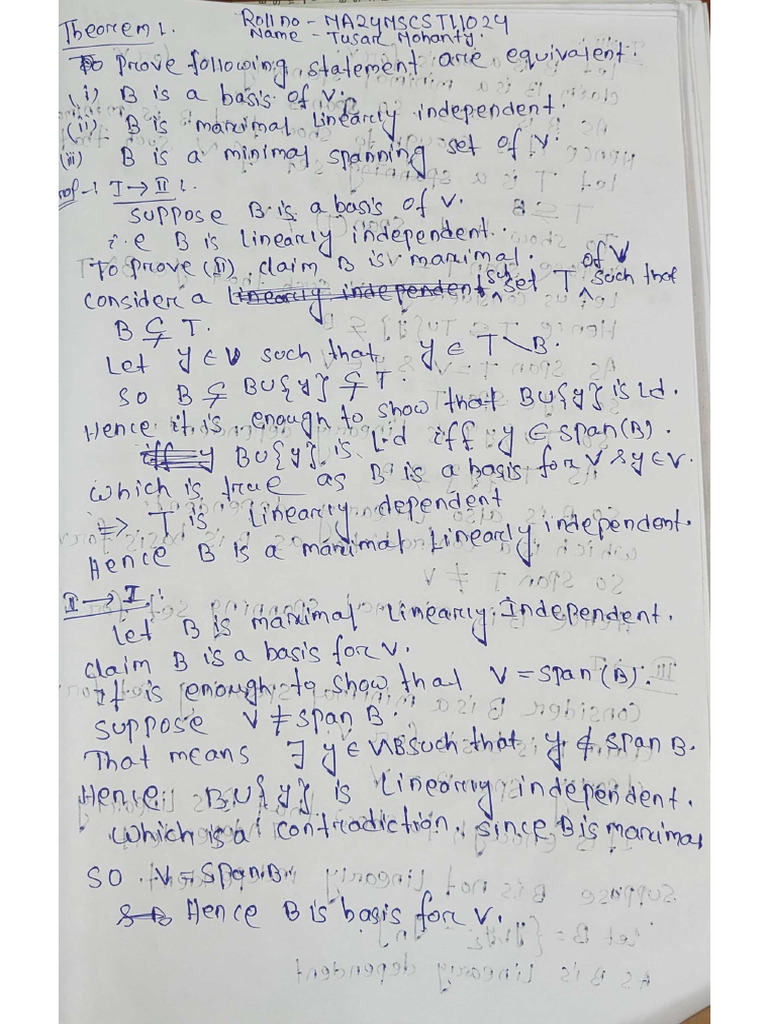 Theorem 1. Roll no - MA24MSCST11024
Name - Tusar Mohanty.
To prove following statement are equivalent.
(i) B is a basis of V.
(ii) B is maximal linearly independent.
(iii) B is a minimal spanning set of V.
Prof-1 I → II :
Suppose B is a basis of V.
i.e B is linearly independent.
To prove (II), claim B is maximal.
consider a linearly independent set T of V such that
B ⊊ T.
Let y ∈ V such that y ∈ T \ B.
So B ⊊ B∪{y} ⊊ T.
Hence it is enough to show that B∪{y} is Ld.
iff y B∪{y} is L.d iff y ∈ span(B).
which is true as B is a basis for V & y ∈ V.
⇒ T is linearly dependent
Hence B is a maximal linearly independent.
II → I :
Let B is maximal linearly Independent.
claim B is a basis for V.
It is enough to show that V = span(B).
Suppose V ≠ span B.
That means ∃ y ∈ V\B such that y ∉ span B.
Hence B∪{y} is linearly independent.
which is a contradiction, since B is maximal
So V = span B.
Hence B is basis for V.